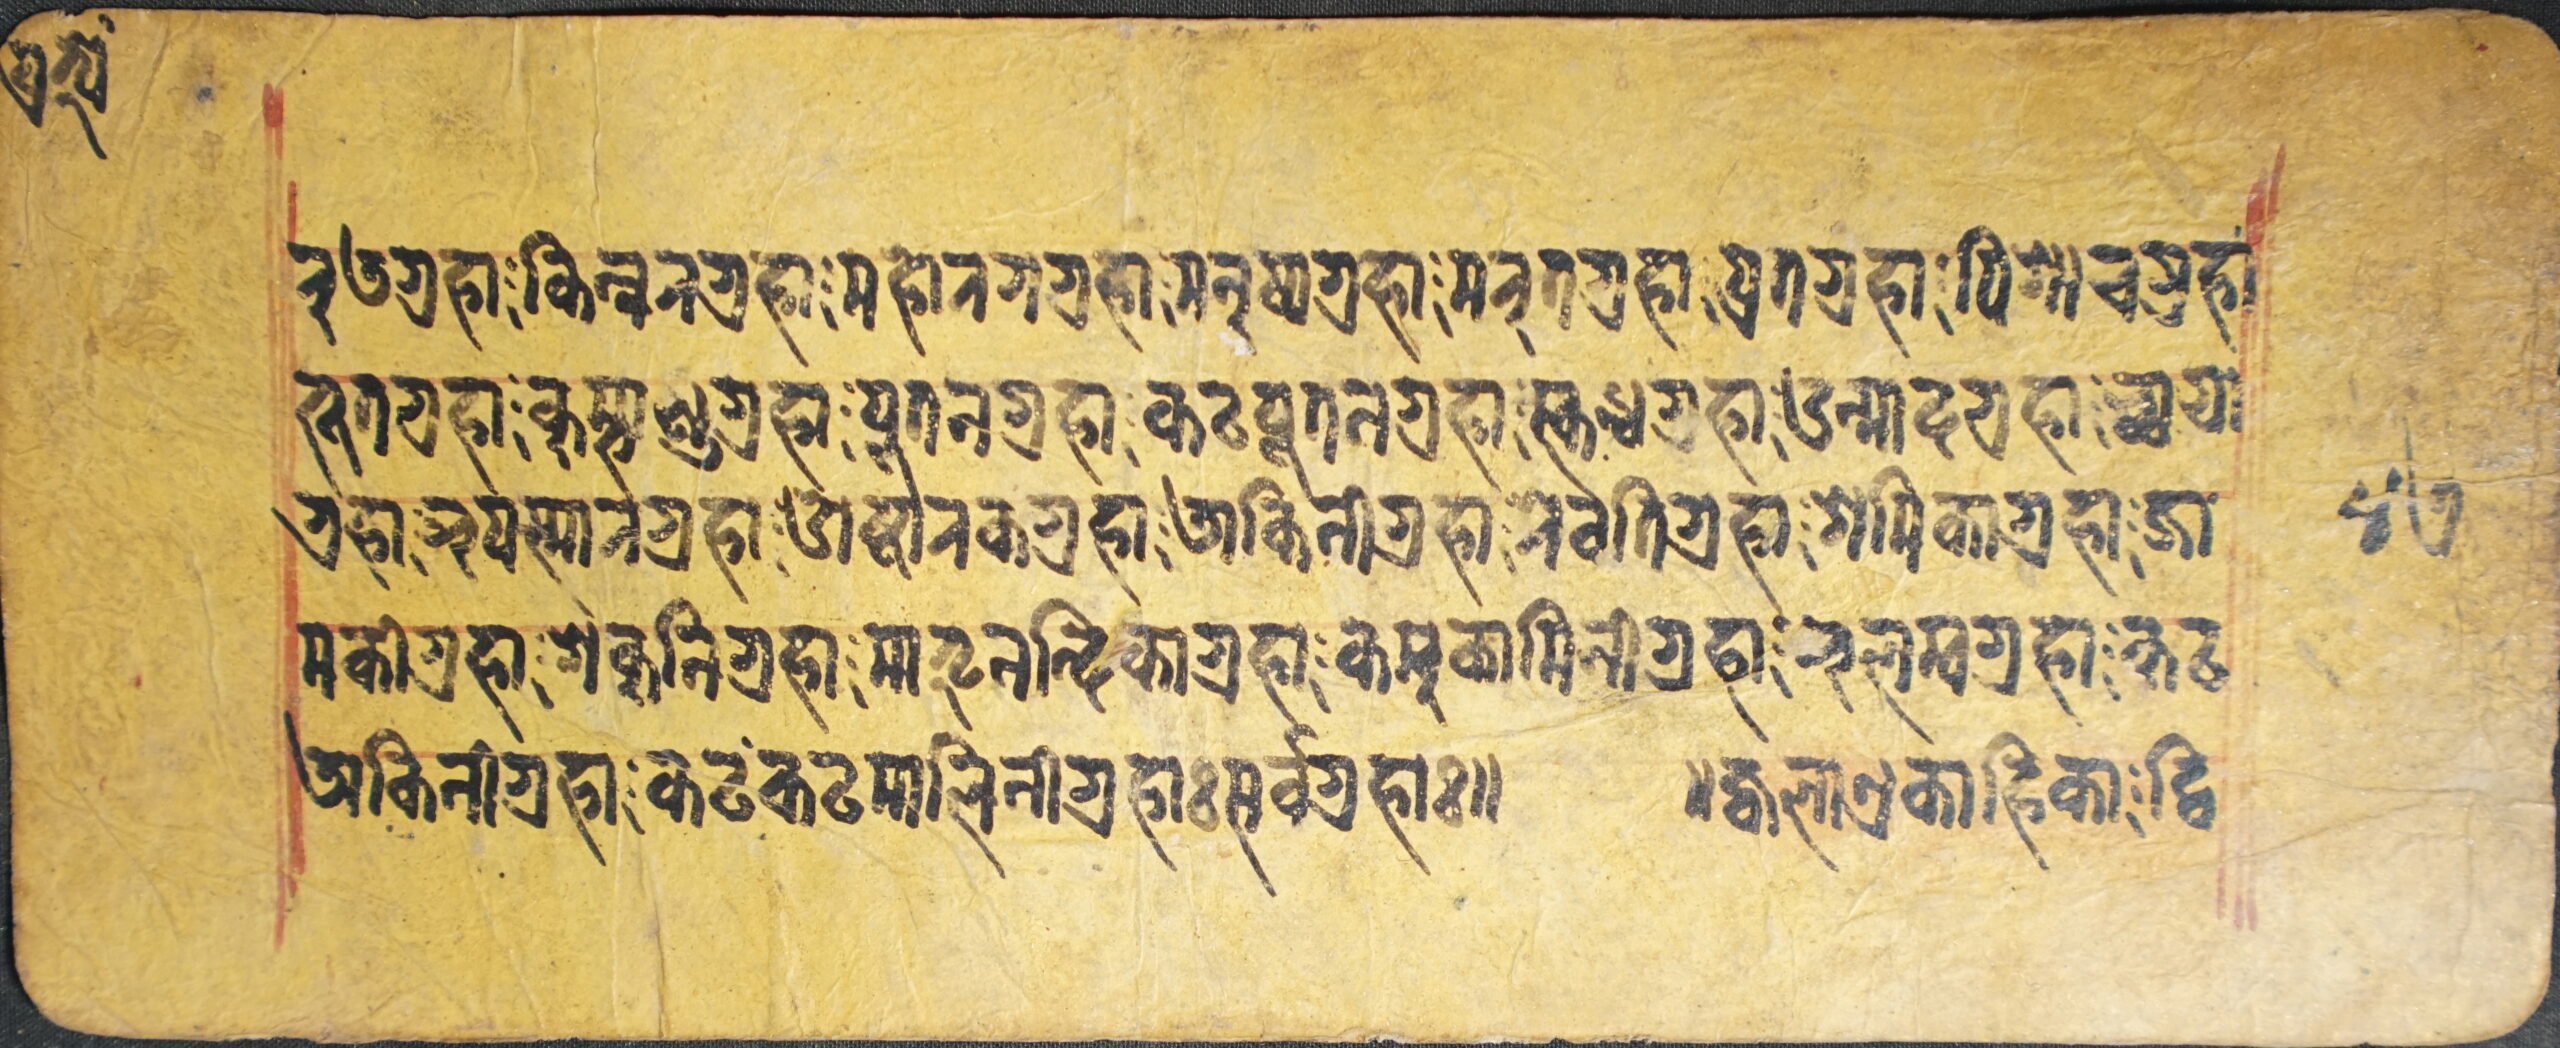 प्रत्यं
रुडग्रहाः किन्नरग्रहाः महोरगग्रहाः मनुष्यग्रहाः मरुतग्रहाः प्रेतग्रहाः पिशाचग्रहां
भूतग्रहाः कुम्भाण्डग्रहाः पुतनग्रहाः कटपूतनग्रहाः स्कन्धग्रहाः उन्मादग्रहाः च्छाया
ग्रहाः अपस्मारग्रहाः ओष्टारकग्रहाः डाकिनीग्रहाः रेवतिग्रहाः शमिकाग्रहाः जा
मकीग्रहाः शकुनिग्रहाः मातृनन्दिकाग्रहाः कम्बुकामिनीग्रहाः अलम्बग्रहाः कट
डाकिनीग्रहाः कटंकटमालिनीग्रहाः सर्वग्रहाः॥ ॥ज्वला एकाहिकाः द्वि